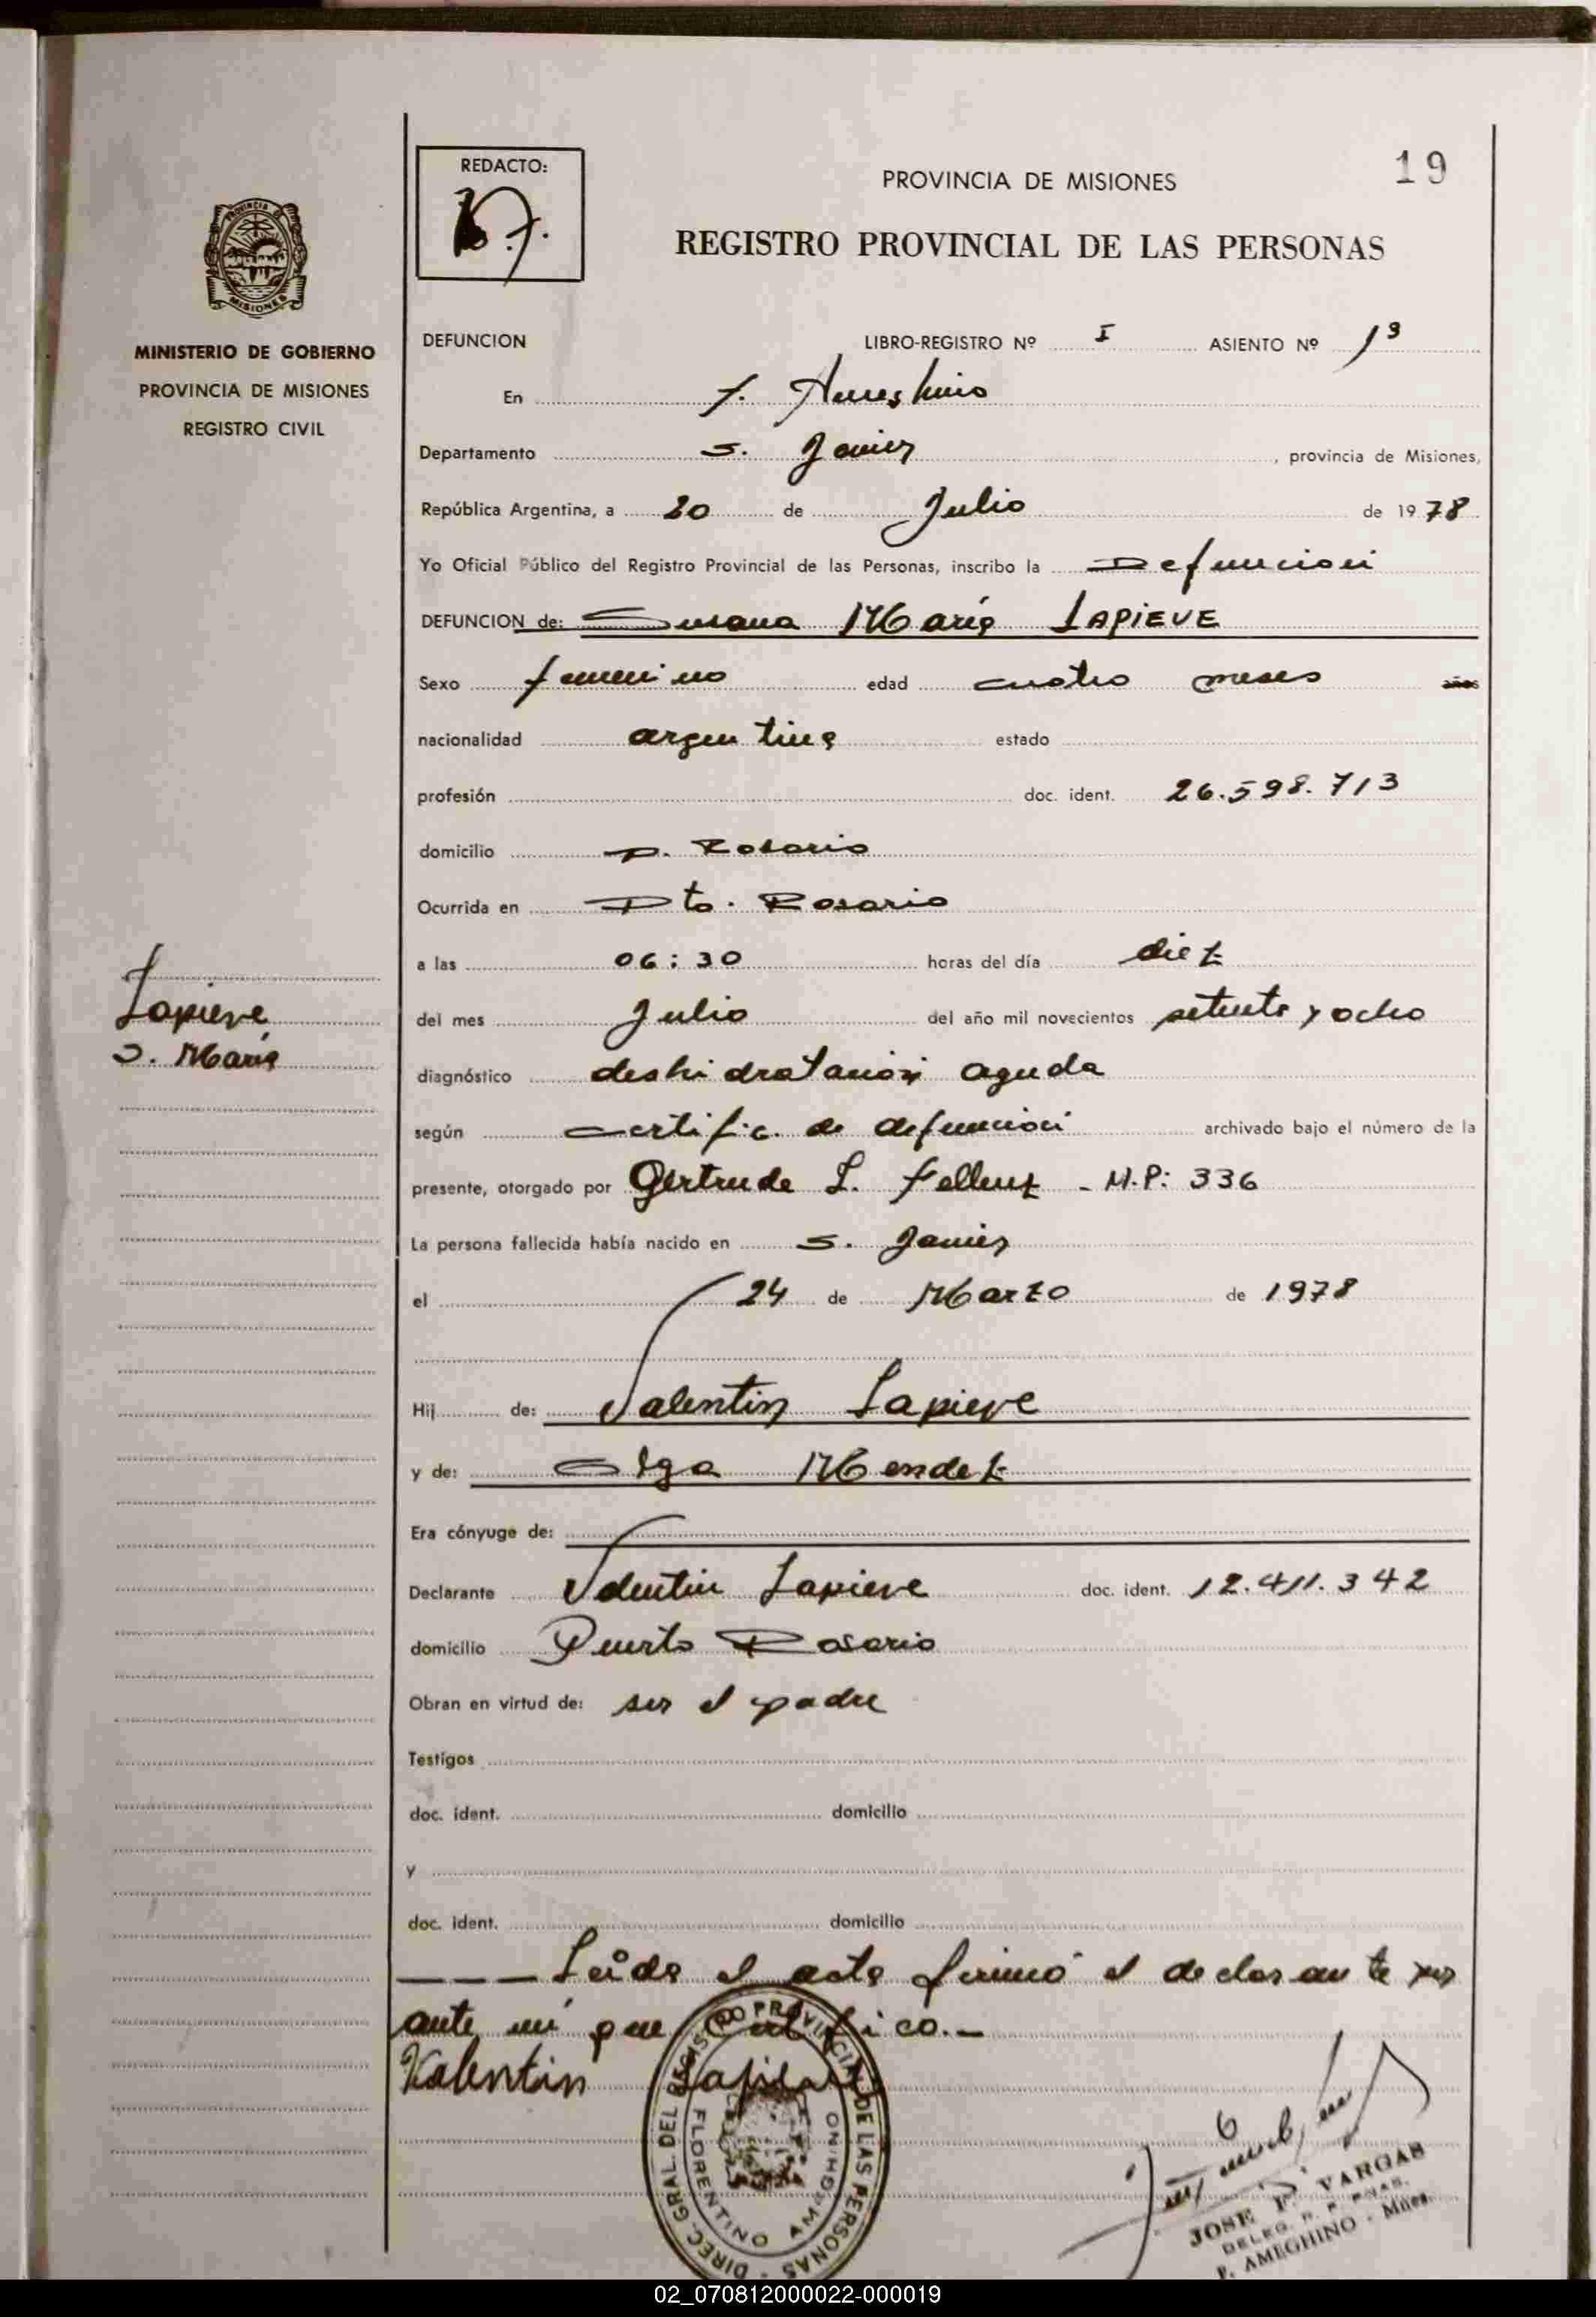 19
REDACTO:
PROVINCIA DE MISIONES
REGISTRO PROVINCIAL DE LAS PERSONAS
PROVINCIA DE
MISIONES
MINISTERIO DE GOBIERNO
PROVINCIA DE MISIONES
REGISTRO CIVIL
DEFUNCION LIBRO-REGISTRO Nº I ASIENTO Nº 19
En F. Ameghino
Departamento S. Javier, provincia de Misiones,
República Argentina, a 20 de Julio de 1978
Yo Oficial Público del Registro Provincial de las Personas, inscribo la Defunción
DEFUNCION de: Susana María LAPIEVE
Sexo femenino edad cuatro meses años
nacionalidad argentina estado
profesión doc. ident. 26.598.713
domicilio p. Rosario
Ocurrida en Pto. Rosario
a las 06:30 horas del día diez
del mes Julio del año mil novecientos setenta y ocho
Lapieve
S. María
diagnóstico deshidratación aguda
según certific. de defunción archivado bajo el número de la
presente, otorgado por Gertrude L. Fellenz - M.P: 336
La persona fallecida había nacido en S. Javier
el 24 de Marzo de 1978
Hij de: Valentin Lapieve
y de: Olga Mendez
Era cónyuge de:
Declarante Valentin Lapieve doc. ident. 12.411.342
domicilio Puerto Rosario
Obran en virtud de: ser el padre
Testigos
doc. ident. domicilio
y
doc. ident. domicilio
Leída el acta firmó el declarante por
ante mí que Certifico.-
Valentin Lapieve
DIREC. GRAL. DEL REGISTRO PROVINCIAL DE LAS PERSONAS
FLORENTINO AMEGHINO
JOSE F. VARGAS
DELEG. R. P. PNAS.
F. AMEGHINO - Mnes.
02_070812000022-000019